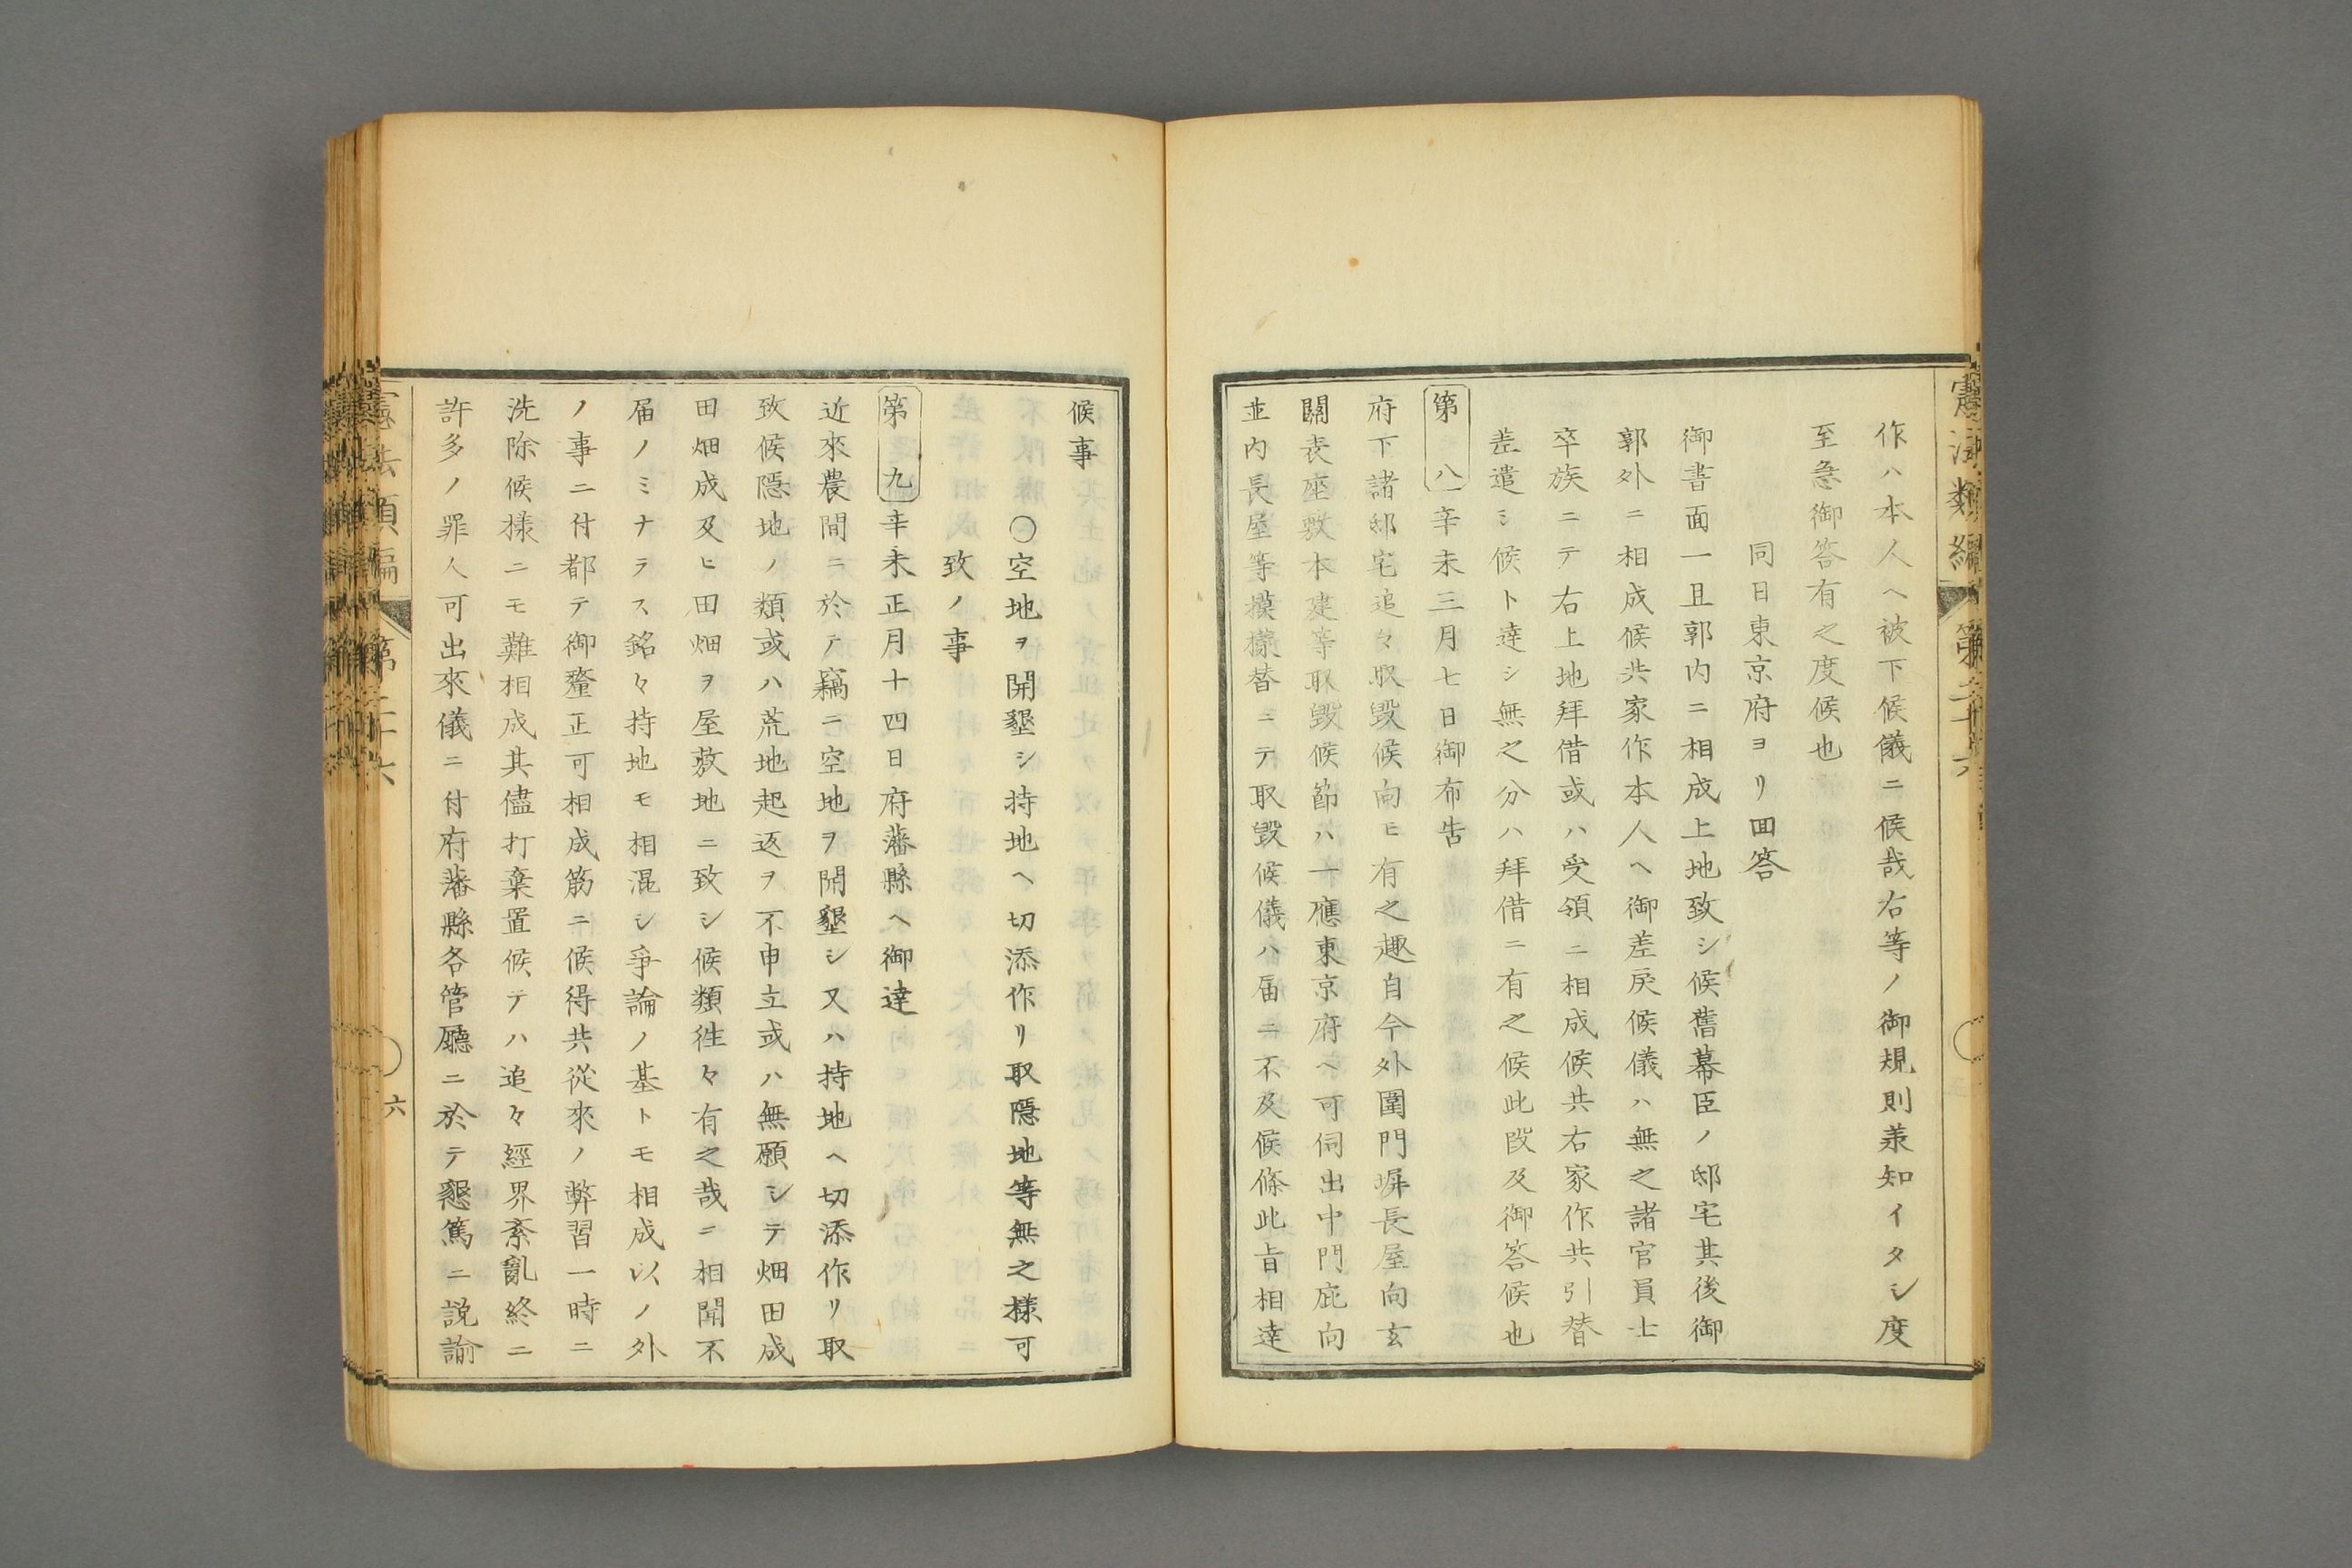 作ハ本人ヘ被下候儀ニ候哉右等ノ御規則兼知イタシ度
至急御答有之度候也
同日東京府ヨリ回答
御書面一旦郭内ニ相成上地致シ候舊幕臣ノ邸宅其後御
郭外ニ相成候共家作本人ヘ御差戻候儀ハ無之諸官員士
卒族ニテ右上地拜借或ハ受領ニ相成候共右家作共引替
差遣シ候ト達シ無之分ハ拜借ニ有之候此段及御答候也
第八辛未三月七日御布告
府下諸邸宅追々取毀候向ヒ有之趣自今外圍門塀長屋向玄
關表座敷本建等取毀候節ハ一應東京府ヘ可伺出中門庇向
並內長屋等模樣替ニテ取毀候儀ハ届ニ不及候條此旨相達
候事
○空地ヲ開墾シ持地ヘ切添作リ取隱地等無之樣可
致ノ事
第九辛未正月十四日府藩縣ヘ御達
近來農間ニ於テ竊ニ空地ヲ開墾シ又ハ持地ヘ切添作リ取
致候隱地ノ類或ハ荒地起返ヲ不申立或ハ無願シテ畑田成
田畑成及ヒ田畑ヲ屋敷地ニ致シ候類徃々有之哉ニ相聞不
届ノミナラス銘々持地モ相混シ爭論ノ基トモ相成以ノ外
ノ事ニ付都テ御釐正可相成筋ニ候得共從來ノ弊習一時ニ
洗除候樣ニモ難相成其儘打棄置候テハ追々經界紊亂終ニ
許多ノ罪人可出來儀ニ付府藩縣各管廳ニ於テ懇篤ニ説諭
憲法類編 第二十六
六